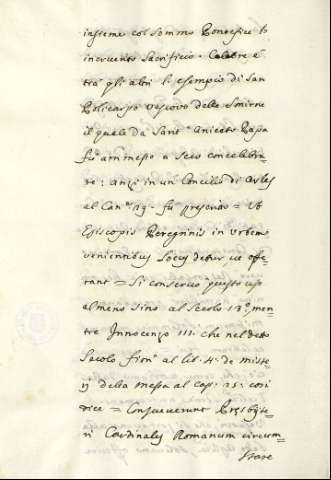 insieme col sommo Pontefice lo
incruento Sacrificio. Celebre è
trà gli altri l'esempio di San
Policarpo vescovo delle Smirne
il quale da Sant' Aniceto Papa
fù ammesso a seco concelebra=
re: anzi in un Concilio di Arles
al Can.e 19. fù prescritto = Ut
Episcopis Peregrinis in urbem
venientibus locus detur ut offe=
rant = Si conservò questo uso
almeno sino al secolo 13.o, men=
tre Innocenzo III. che nel detto
Secolo fiorì al lib. 4. de miste=
rij della messa al cap. 25. così
dice = Consueverunt Presbyte=
ri Cardinales Romanum circum=
stare